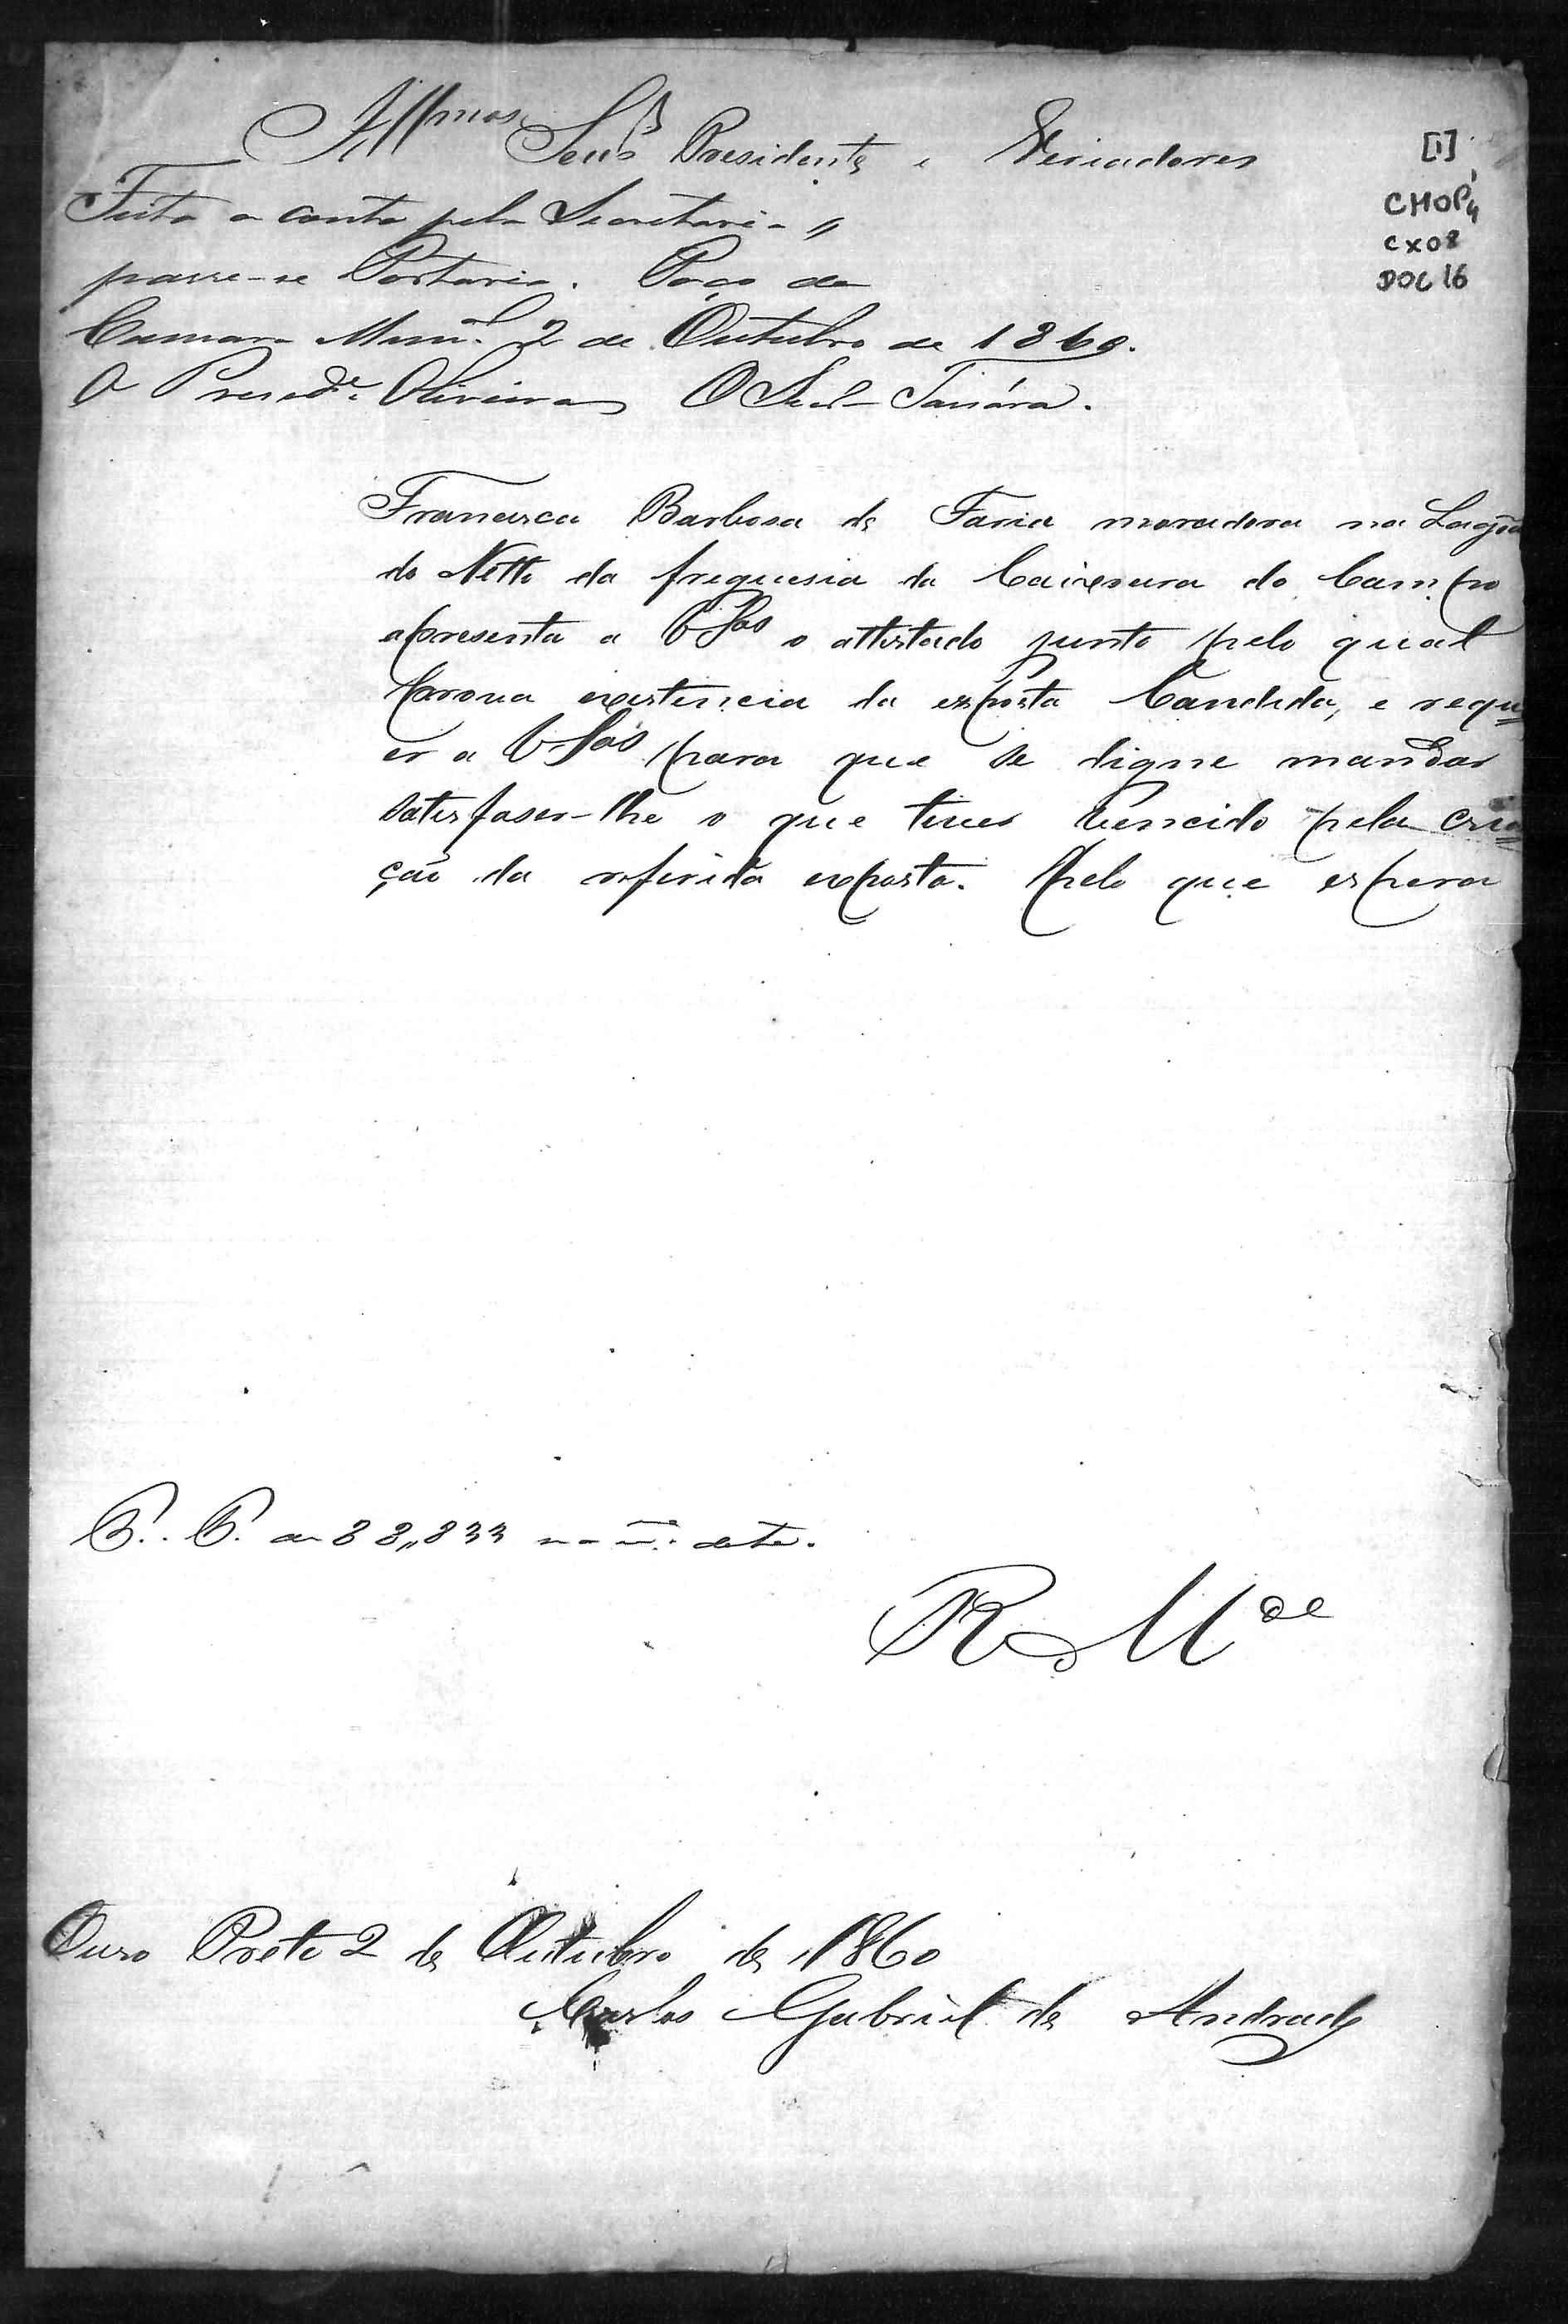 Illmos Senrs Presidente e Veriadores
[1]
CMOP
CX08
DOC 16
Feita a conta pela Secretaria,
passe-se Portaria. Paço da
Camara Munal 2 de Outubro de 1860.
O Presede Oliveira O Secr
Francisca Barbosa de Faria moradora na Lagoa
do Netto da freguesia da Caixoeira do Campo
apresenta a VSas o attestado junto pelo qual
prova existencia da exposta Candida, e requ=
er a VSas para que se digne mandar
satisfaser-lhe o que tiver vencido pela cria=
ção da referida exposta. Pelo que espera
P. P. de 88,,833 na ma data.
R Mce
Ouro Preto 2 de Outubro de 1860
Carlos Gabriel de Andrade